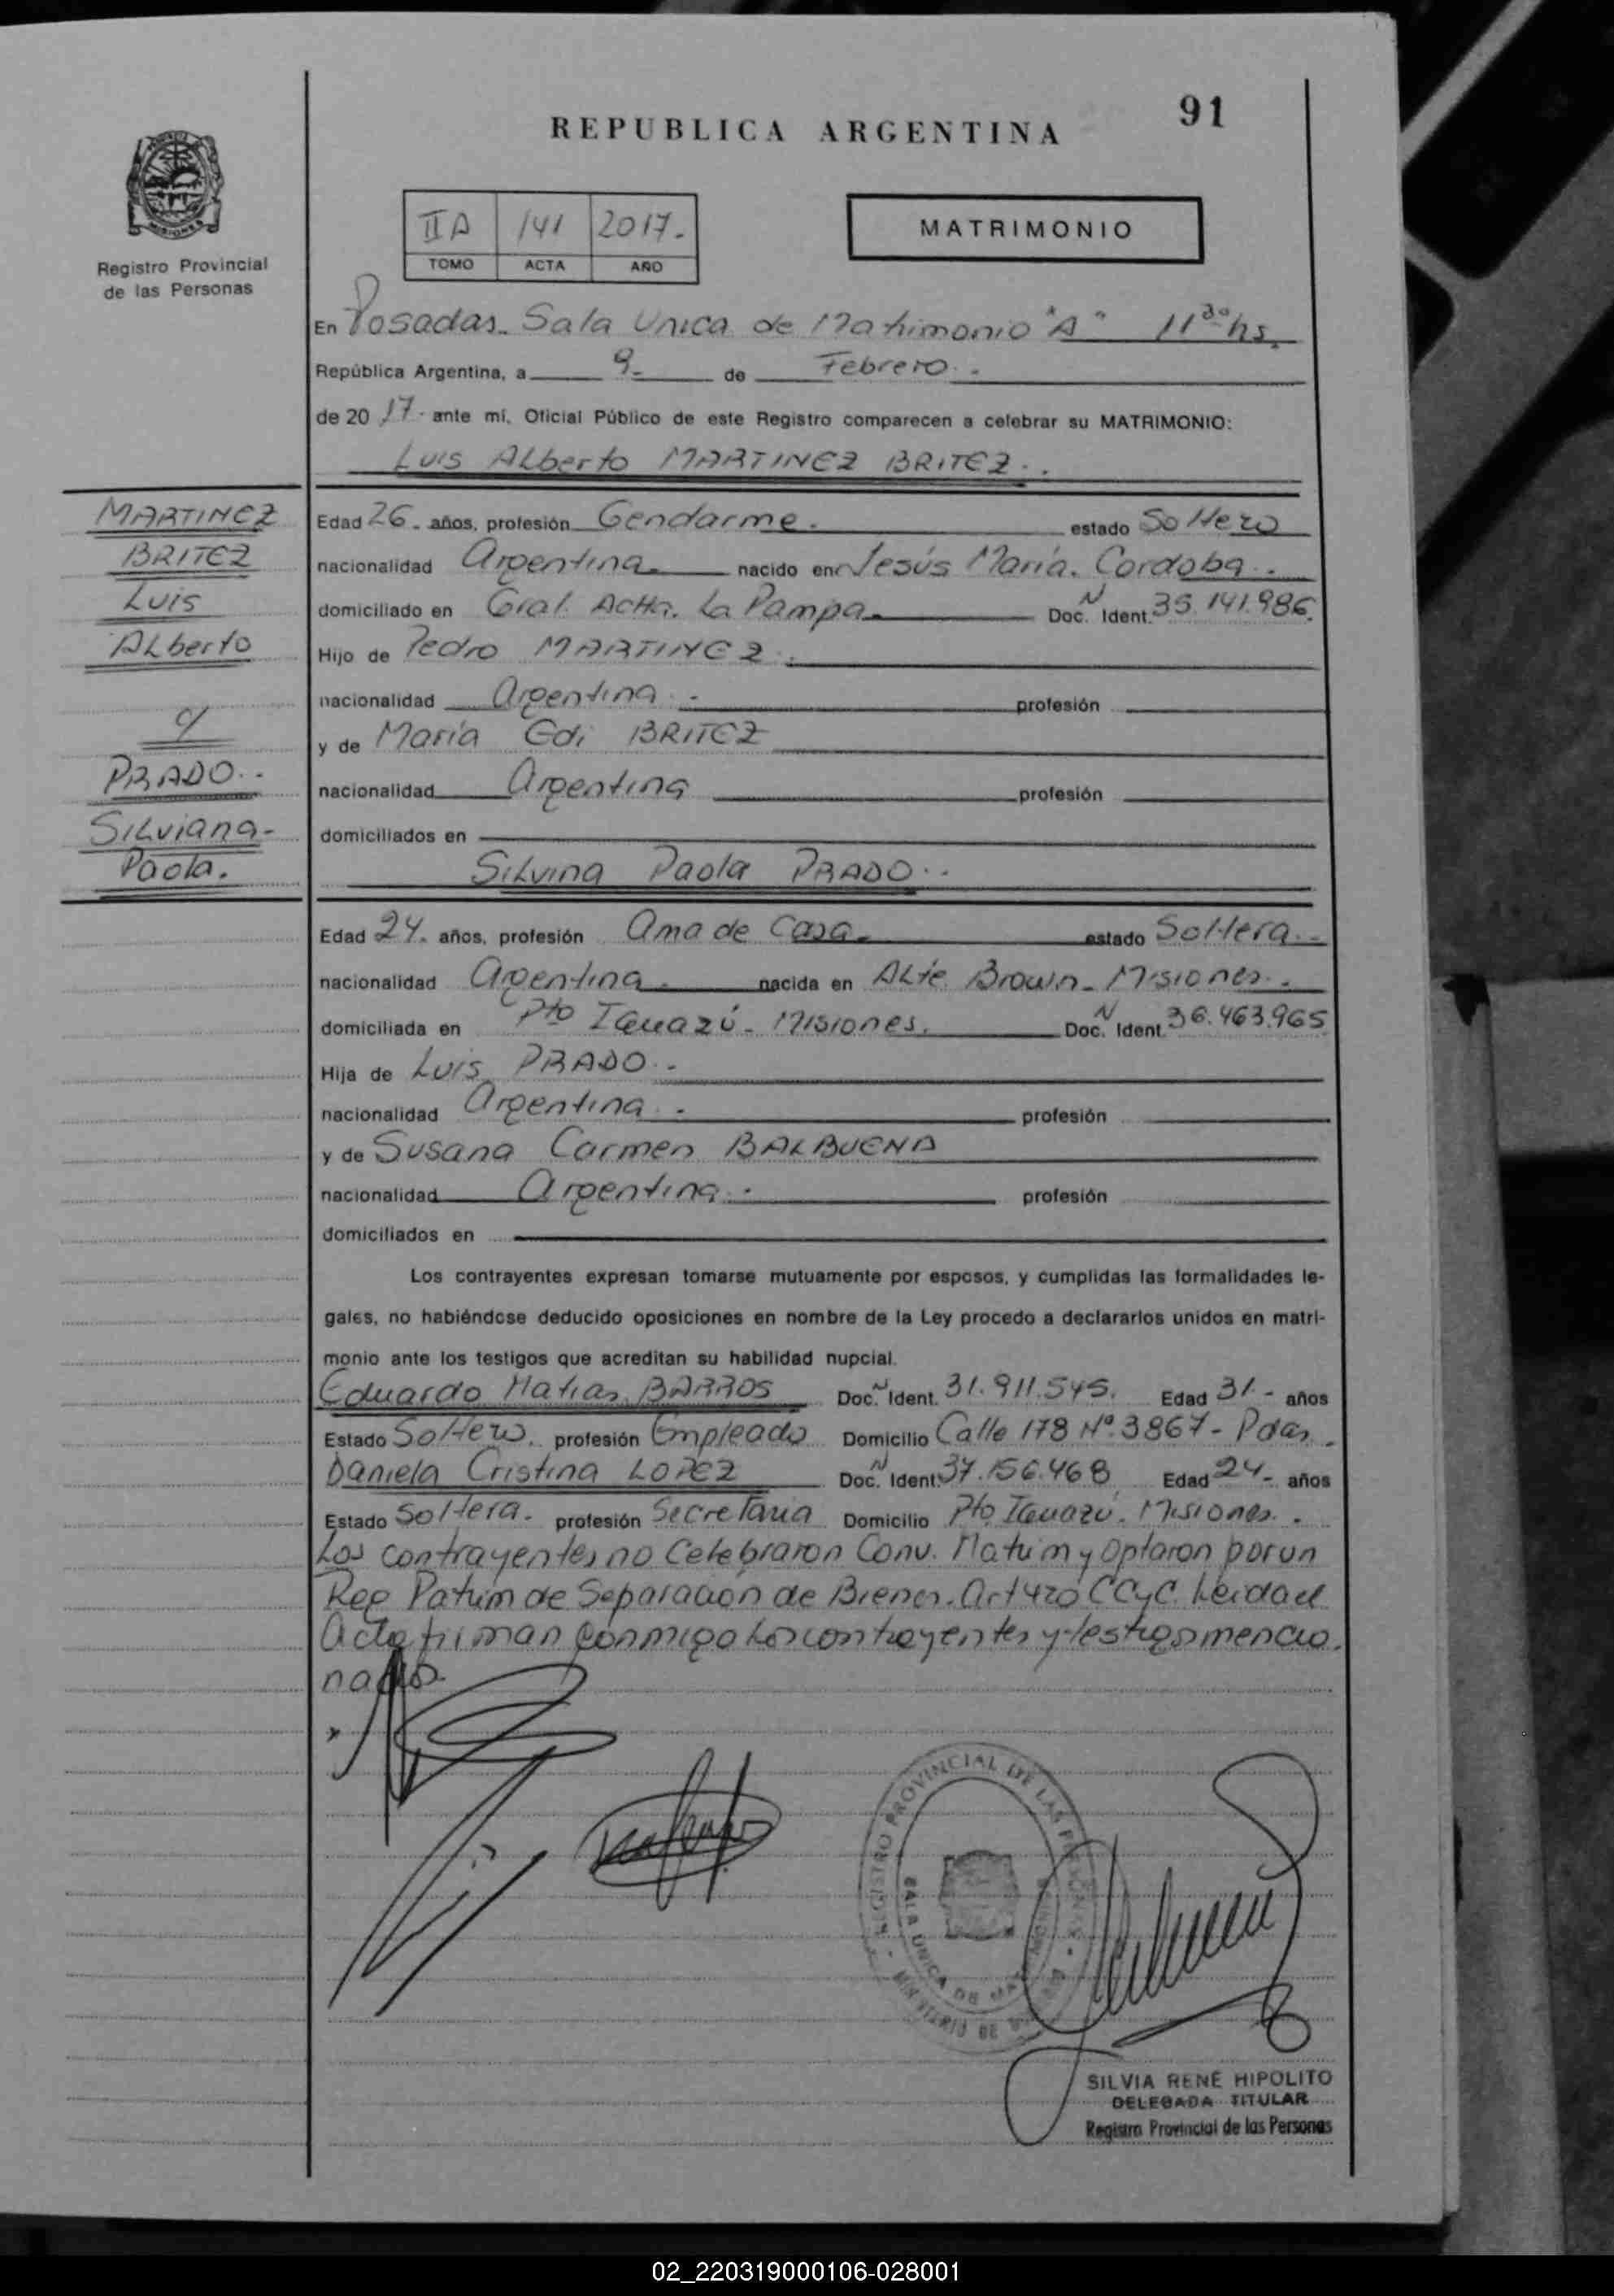 91
REPUBLICA ARGENTINA
MISIONES
Registro Provincial
de las Personas
II A 141 2017.-
TOMO ACTA AÑO
MATRIMONIO
En Posadas. Sala Unica de Matrimonio "A" 11³⁰hs.
República Argentina, a 9- de Febrero.-
de 2017- ante mí, Oficial Público de este Registro comparecen a celebrar su MATRIMONIO:
Luis Alberto MARTINEZ BRITEZ..
MARTINEZ
BRITEZ
Luis
Alberto
c/
PRADO..
Silviana-
Paola.
Edad 26. años, profesión Gendarme. estado Soltero
nacionalidad Argentina. nacido en Jesús María. Cordoba..
domiciliado en Gral. Acha. La Pampa. Doc. N Ident. 35.141.986.
Hijo de Pedro MARTINEZ.
nacionalidad Argentina.- profesión
y de María Edi BRITEZ
nacionalidad Argentina profesión
domiciliados en
Silvina Paola PRADO..
Edad 24. años, profesión Ama de Casa. estado Soltera.-
nacionalidad Argentina. nacida en Alte Brown- Misiones..
domiciliada en Pto Iguazú- Misiones. Doc. N Ident. 36.463.965
Hija de Luis PRADO..
nacionalidad Argentina.. profesión
y de Susana Carmen BALBUENA
nacionalidad Argentina.. profesión
domiciliados en
Los contrayentes expresan tomarse mutuamente por esposos, y cumplidas las formalidades le-
gales, no habiéndose deducido oposiciones en nombre de la Ley procedo a declararlos unidos en matri-
monio ante los testigos que acreditan su habilidad nupcial.
Eduardo Matias BARROS Doc. N Ident. 31.911.545. Edad 31.- años
Estado Soltero. profesión Empleado Domicilio Calle 178 Nº 3867- Pdas.
Daniela Cristina LOPEZ Doc. N Ident. 37.156.468 Edad 24- años
Estado Soltera. profesión Secretaria Domicilio Pto. Iguazú. Misiones..
Los contrayentes no Celebraron Conv. Matrim y Optaron por un
Reg Patrim de Separación de Bienes. Art 420 CCyC. Leida el
Acta firman conmigo los contrayentes y testigos mencio.
nados.
REGISTRO PROVINCIAL DE LAS PERSONAS
SALA UNICA DE
SILVIA RENE HIPOLITO
DELEGADA TITULAR
Registro Provincial de las Personas
02_220319000106-028001